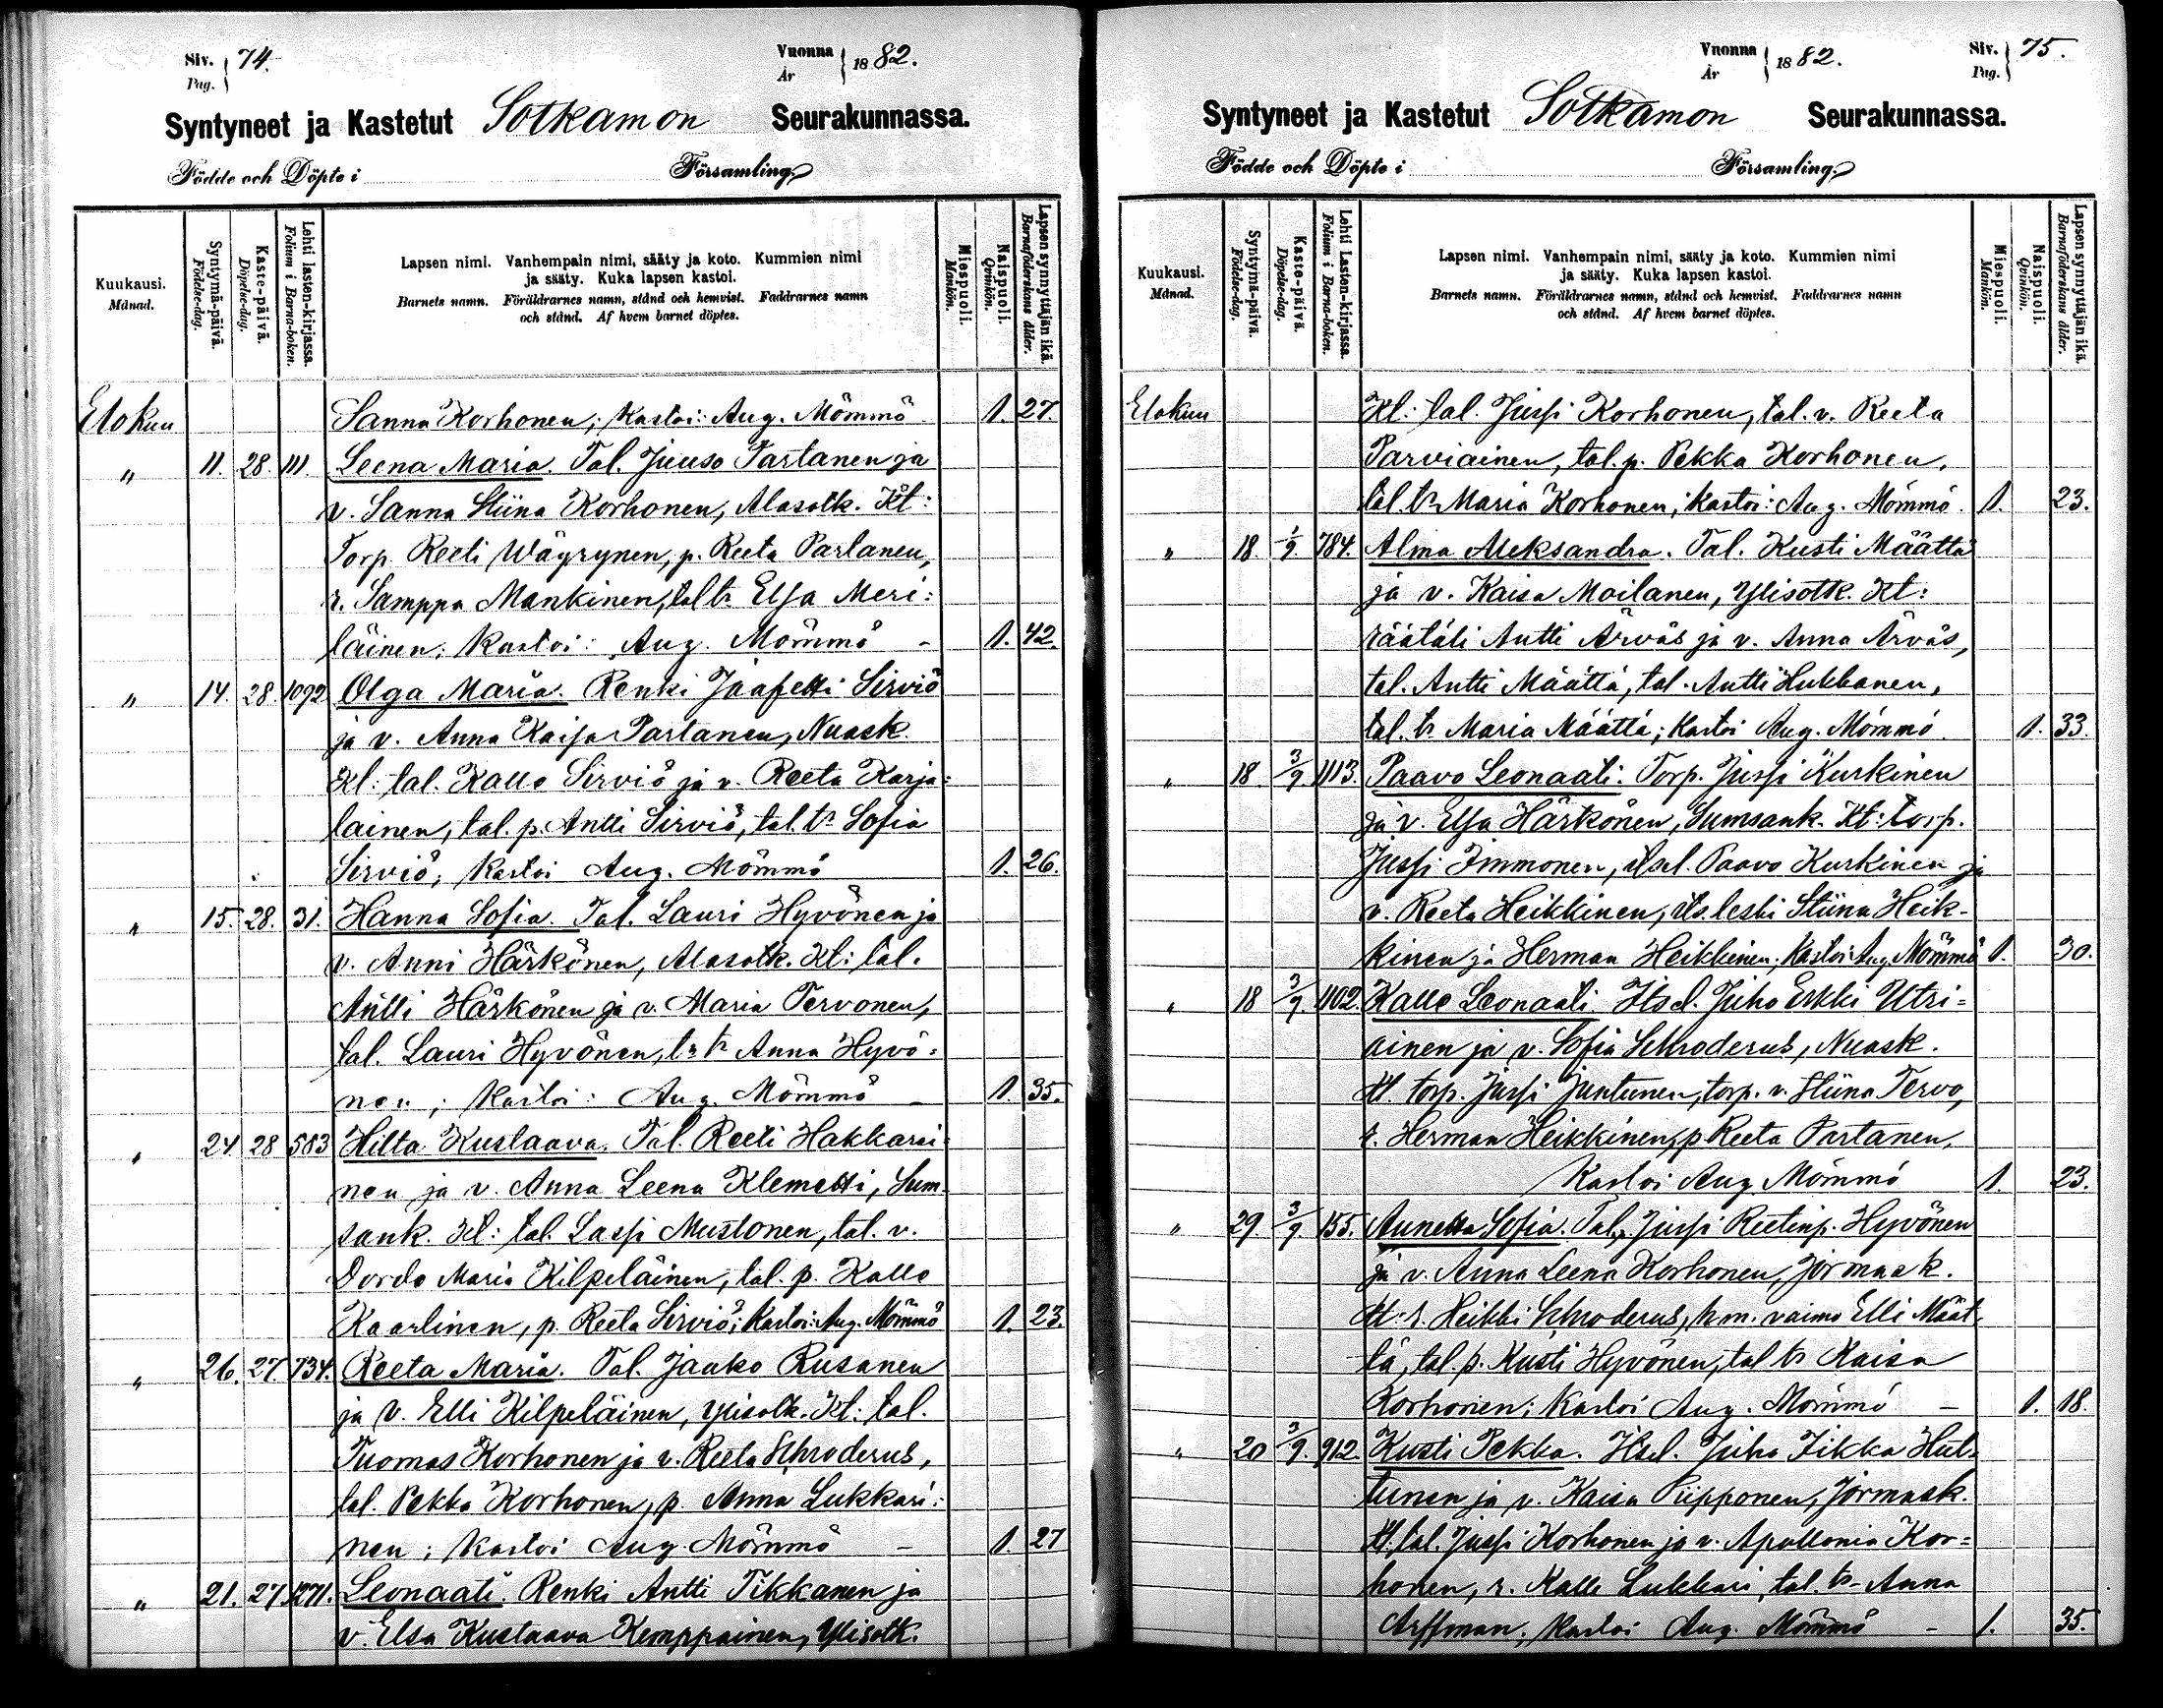 Siv. 74.
Pag.
Vuonna 1882.
År
Syntyneet ja Kastetut Sotkamon Seurakunnassa.
Födde och Döpte i Församling.
Kuukausi.
Månad.
Syntymä-päivä.
Födelse-dag.
Kaste-päivä.
Döpelse-dag.
Lehti lasten-kirjassa.
Folium i Barna-boken.
Lapsen nimi. Vanhempain nimi, sääty ja koto. Kummien nimi
ja sääty. Kuka lapsen kastoi.
Barnets namn. Föräldrarnes namn, stånd och hemvist. Faddrarnes namn
och stånd. Af hvem barnet döptes.
Miespuoli.
Mankön.
Naispuoli.
Qvinkön.
Lapsen synnyttäjän ikä.
Barnaföderskans ålder.
Elokuu Sanna Korhonen; Kastoi: Aug. Mömmö 1. 27.
" 11. 28. 111. Leena Maria. Tal. Juuso Partanen ja
v. Sanna Stiina Korhonen, Alasotk. Kt:
Torp. Reeti Wäyrynen, p. Reeta Partanen,
r. Samppa Mankinen, tal. tr Elsa Meri:
läinen; Kastoi: Aug. Mömmö - 1. 42.
" 14. 28. 1092 Olga Maria. Renki Jaafetti Sirviö
ja v. Anna Kaisa Partanen, Nuask.
Kt: tal. Kalle Sirviö ja v. Reeta Karja:
lainen, tal. p. Antti Sirviö, tal. tr Sofia
Sirviö; Kastoi Aug. Mömmö 1. 26.
" 15. 28. 31. Hanna Sofia. Tal. Lauri Hyvönen ja
v. Anni Härkönen, Alasotk. Kt: tal.
Antti Härkönen ja v. Maria Tervonen,
tal. Lauri Hyvönen, tr Anna Hyvö:
nen; Kastoi: Aug. Mömmö - 1. 35.
" 24. 28 583 Hilta Kustaava. Tal. Reeti Hakkarai:
nen ja v. Anna Leena Klemetti, Sum-
sank. Kt: tal. Lassi Mustonen, tal. v.
Dordo Maria Kilpeläinen, tal. p. Kalle
Kaarlinen, p. Reeta Sirviö; Kastoi: Aug. Mömmö 1. 23.
" 26. 27. 734. Reeta Maria. Tal. Jaako Rusanen
ja v. Elli Kilpeläinen, Ylisotk. Kt: tal.
Tuomas Korhonen ja v. Reeta Schroderus,
tal. Pekka Korhonen, p. Anna Lukkari:
nen; Kastoi Aug. Mömmö - 1. 27
" 21. 27. 1271. Leonaati. Renki Antti Tikkanen ja
v. Elsa Kustaava Kemppainen, Ylisotk.
Vuonna 1882.
År
Siv. 75.
Pag.
Syntyneet ja Kastetut Sotkamon Seurakunnassa.
Födde och Döpte i Församling.
Kuukausi.
Månad.
Syntymä-päivä.
Födelse-dag.
Kaste-päivä.
Döpelse-dag.
Lehti Lasten-kirjassa.
Folium i Barna-boken.
Lapsen nimi. Vanhempain nimi, sääty ja koto. Kummien nimi
ja sääty. Kuka lapsen kastoi.
Barnets namn. Föräldrarnes namn, stånd och hemvist. Faddrarnes namn
och stånd. Af hvem barnet döptes.
Miespuoli.
Mankön.
Naispuoli.
Qvinkön.
Lapsen synnyttäjän ikä.
Barnaföderskans ålder.
Elokuu Kt: tal. Jussi Korhonen, tal. v. Reeta
Parviainen, tal. p. Pekka Korhonen,
tal. tr Maria Korhonen; Kastoi: Aug. Mömmö. 1. 23.
" 18 1/9. 784. Alma Aleksandra. Tal. Kusti Määttä
ja v. Kaisa Moilanen, Ylisotk. Kt:
räätäli Antti Ärväs ja v. Anna Ärväs,
tal. Antti Määttä, tal. Antti Hukkanen,
tal. tr Maria Määttä; Kastoi Aug. Mömmö. 1. 33.
" 18. 3/9 1113. Paavo Leonaati. Torp. Jussi Kurkinen
ja v. Elsa Härkönen, Sumsank. Kt: torp.
Jussi Immonen, itsel. Paavo Kurkinen ja
v. Reeta Heikkinen, its. leski Stiina Heik-
kinen ja Herman Heikkinen; Kastoi Aug. Mömmö 1. 30.
" 18 3/9. 1102. Kalle Leonaati. Itsel. Juho Erkki Utri=
ainen ja v. Sofia Schroderus, Nuask.
Kt. torp. Jussi Juntunen, torp. v. Stiina Tervo,
r. Herman Heikkinen, p. Reeta Partanen,
Kastoi Aug. Mömmö 1. 23.
" 29. 3/9. 155. Annetta Sofia. Tal. Jussi Reetinp. Hyvönen
ja v. Anna Leena Korhonen, Jormask.
Kt: r. Heikki Schroderus, k.m. vaimo Elli Määt-
tä, tal. p. Kusti Hyvönen, tal. tr Kaisa
Korhonen; Kastoi Aug. Mömmö - 1. 18.
" 20 3/9. 912. Kusti Pekka. Itsel. Juho Iikka Hul-
tunen ja v. Kaisa Piipponen, Jormask.
Kt. tal. Jussi Korhonen ja v. Apollonia Kor=
honen, r. Kalle Lukkari, tal. tr Anna
Arffman; Kastoi Aug. Mömmö - 1. 35.